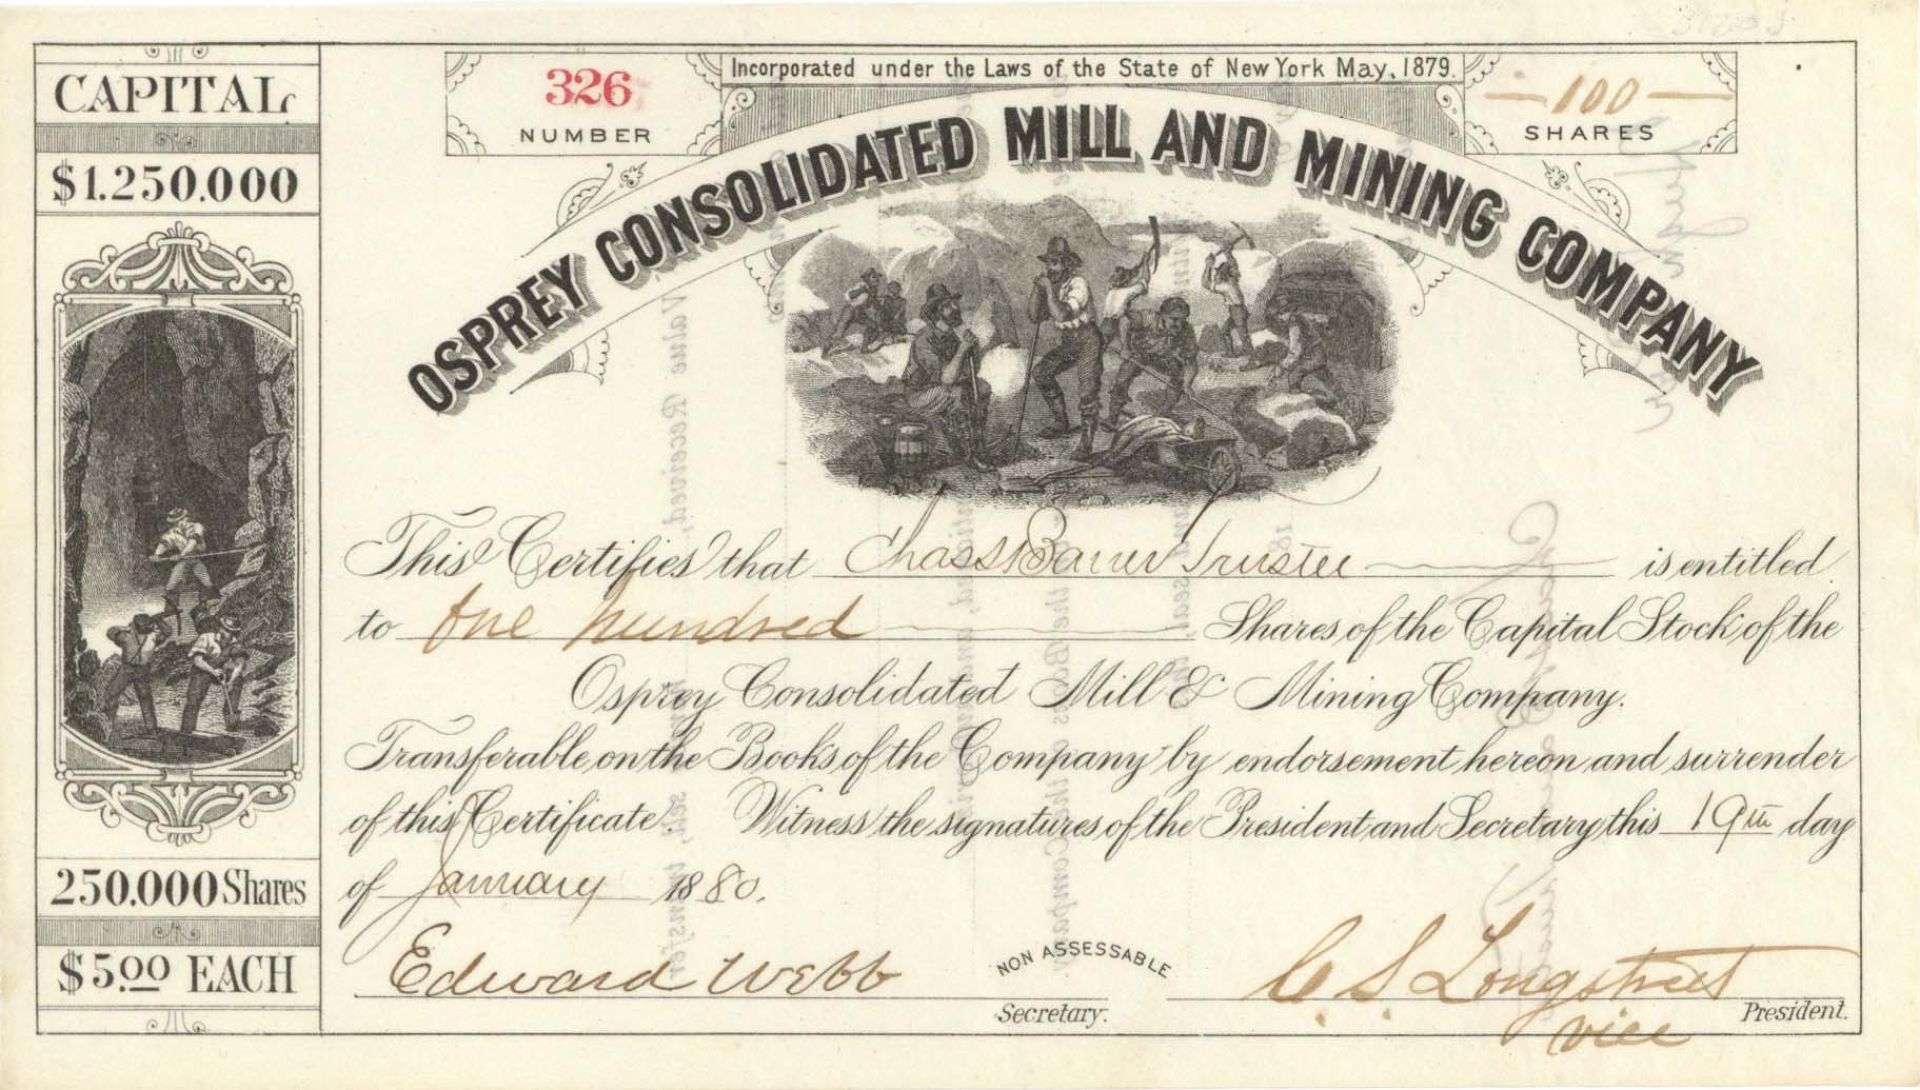 CAPITAL
$1.250.000
250.000 Shares
$5.00 EACH
326
NUMBER
Incorporated under the Laws of the State of New York May, 1879.
100
SHARES
OSPREY CONSOLIDATED MILL AND MINING COMPANY
This Certifies that Chas S Trustee is entitled
to One hundred Shares of the Capital Stock of the
Osprey Consolidated Mill & Mining Company.
Transferable on the Books of the Company by endorsement hereon and surrender
of this Certificate. Witness the signatures of the President and Secretary this 19th day
of January 1880.
Edward Webb
NON ASSESSABLE
C. S. Longstreet
Secretary.
vice President.